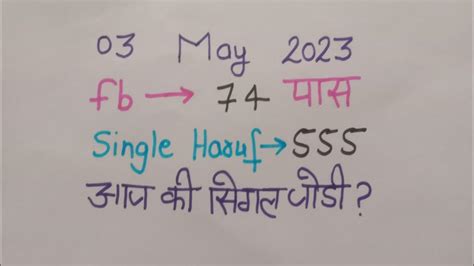 03 May 2023
fb → 74 पास
Single Haruf → 555
आज की सिगल जोडी ?